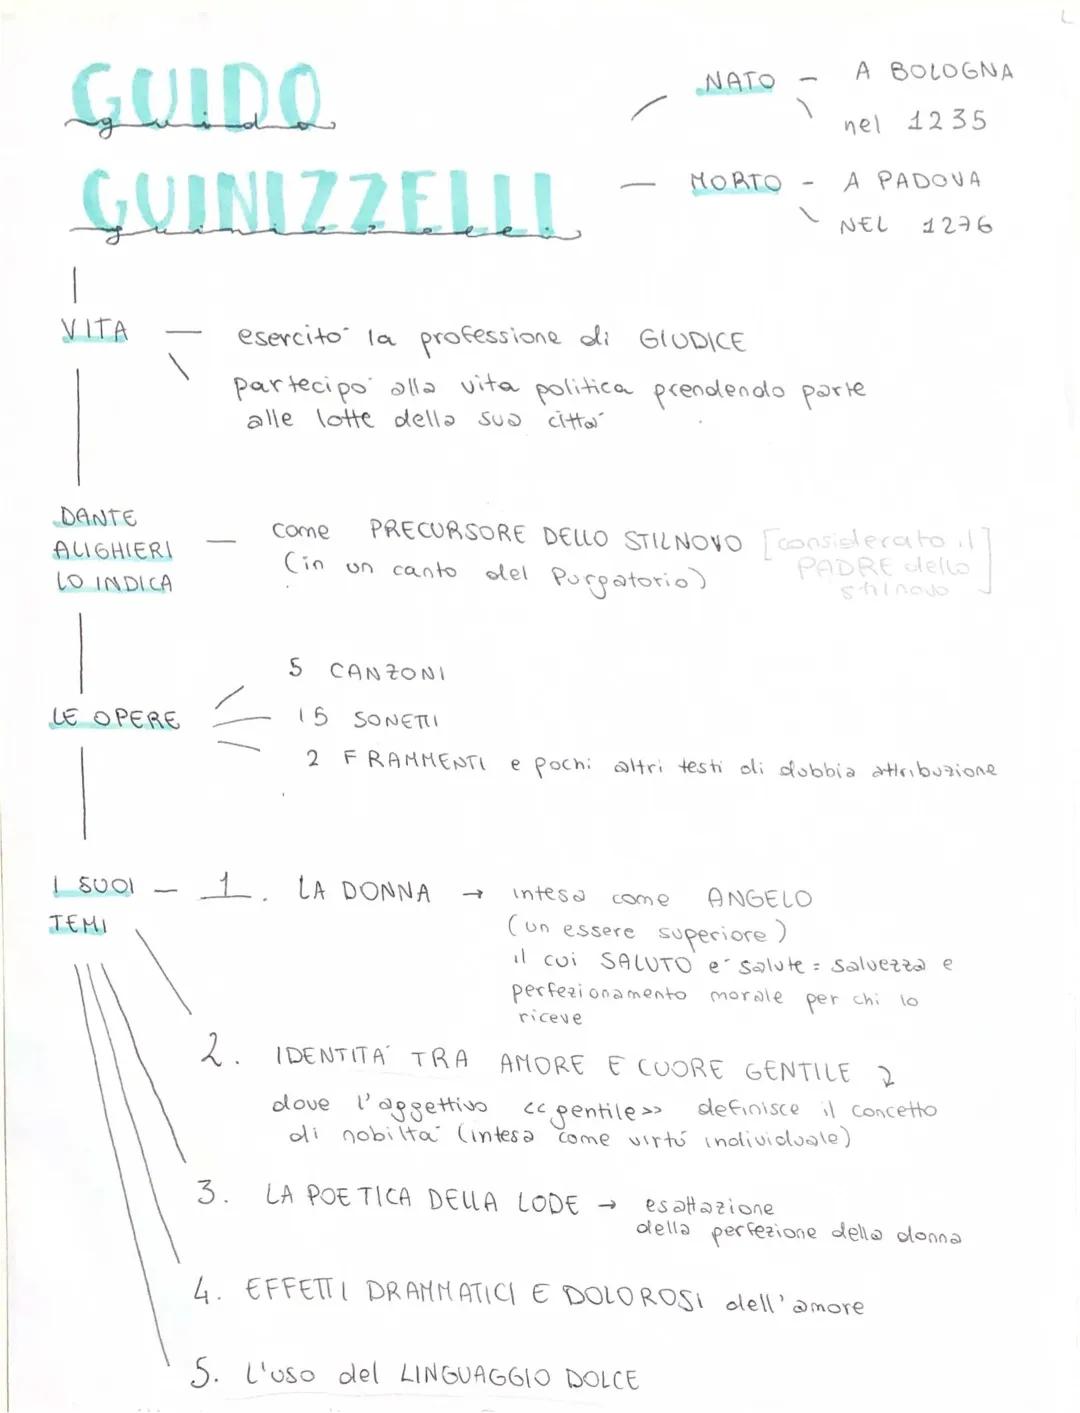 GUIDO
guido
GUINIZZELLI
guinizzelli
NATO - A BOLOGNA
nel 1235
MORTO - A PADOVA
NEL 1276
VITA — esercitò la professione di GIUDICE
partecipò alla vita politica prendendo parte
alle lotte della sua città
DANTE
ALIGHIERI
LO INDICA
— come PRECURSORE DELLO STILNOVO
(in un canto del Purgatorio)
[considerato il
PADRE dello
stilnovo]
LE OPERE
5 CANZONI
15 SONETTI
2 FRAMMENTI e pochi altri testi di dubbia attribuzione
I SUOI
TEMI
1. LA DONNA → intesa come ANGELO
(un essere superiore)
il cui SALUTO è salute = salvezza e
perfezionamento morale per chi lo
riceve
2. IDENTITÀ TRA AMORE E CUORE GENTILE
dove l'aggettivo <<gentile>> definisce il concetto
di nobiltà (intesa come virtú individuale)
3. LA POETICA DELLA LODE → esaltazione
della perfezione della donna
4. EFFETTI DRAMMATICI E DOLOROSI dell'amore
5. L'uso del LINGUAGGIO DOLCE